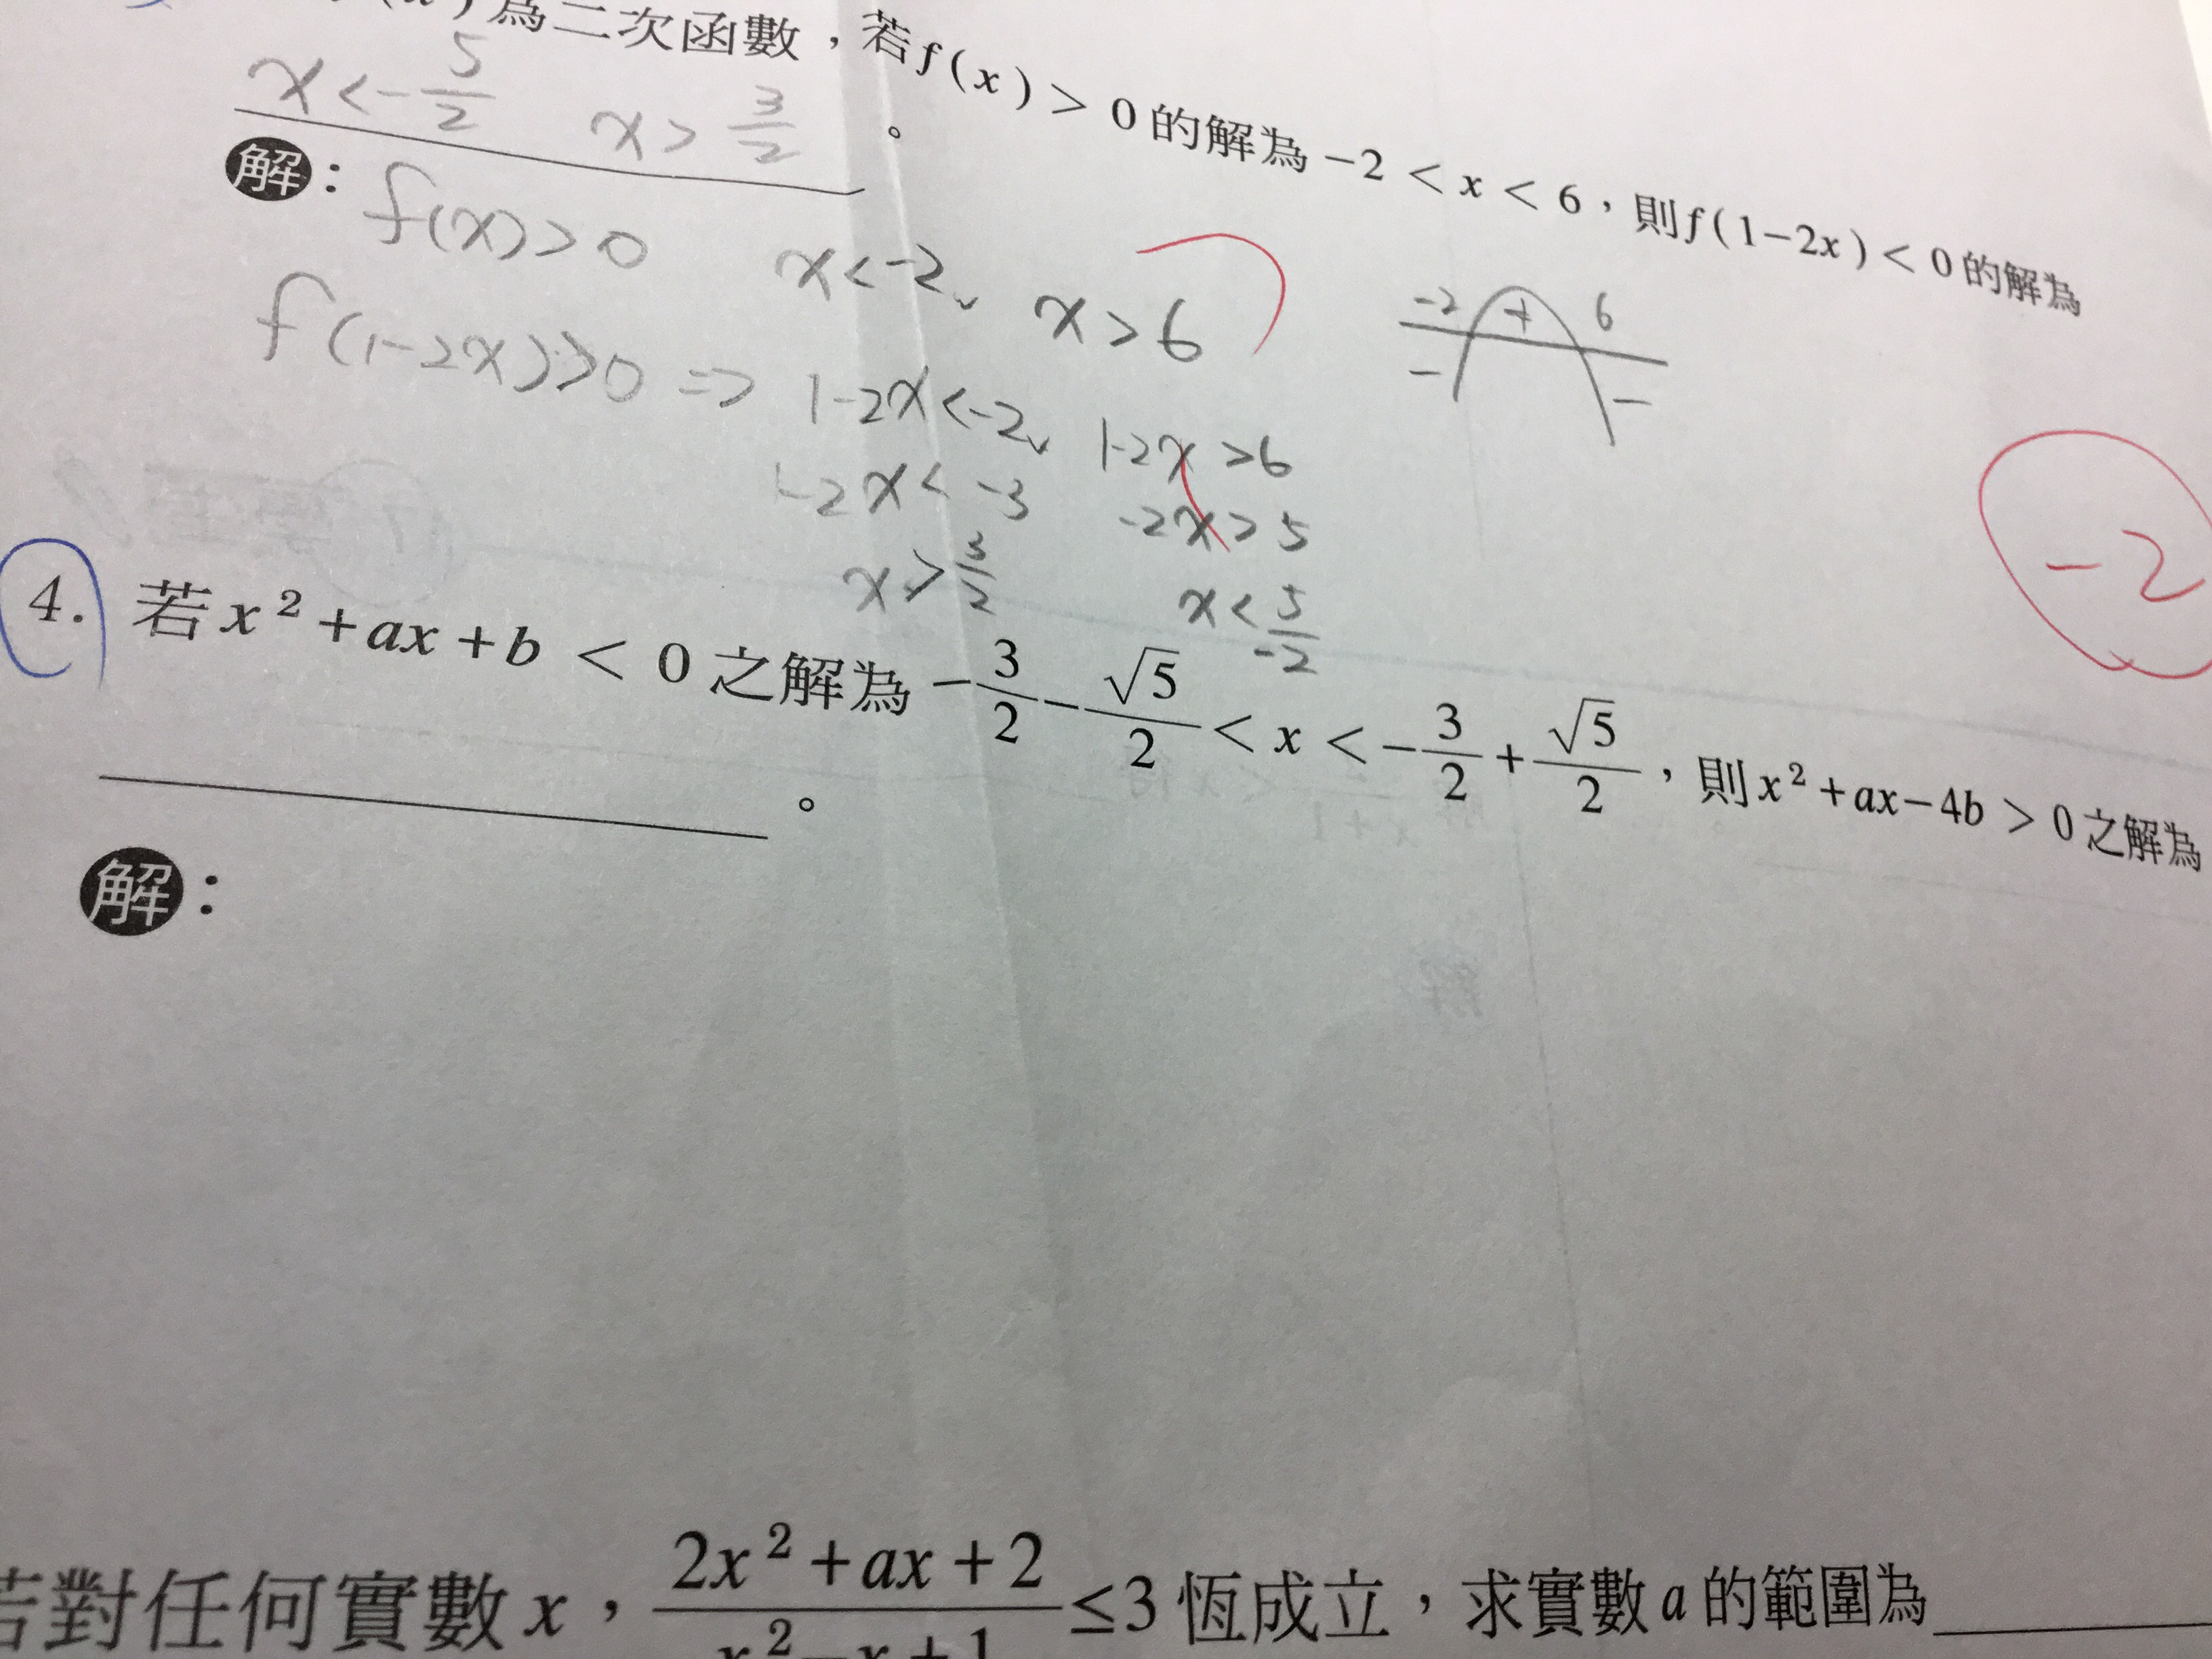 為二次函數，若f(x) > 0 的解為 −2 < x < 6，則f(1−2x) < 0 的解為
x < -5/2 x > 3/2 。
解：f(x) > 0 x < -2、x > 6
-2 + 6
- -
f(1-2x) > 0 => 1-2x < -2、1-2x > 6
-2x < -3 -2x > 5
x > 3/2 x < 5/-2
-2
4. 若 x²+ax+b < 0 之解為 −3/2−√5/2 < x < −3/2+√5/2，則 x²+ax−4b > 0 之解為
。
解：
若對任何實數 x，(2x²+ax+2)/(x²−x+1) ≤3 恆成立，求實數 a 的範圍為